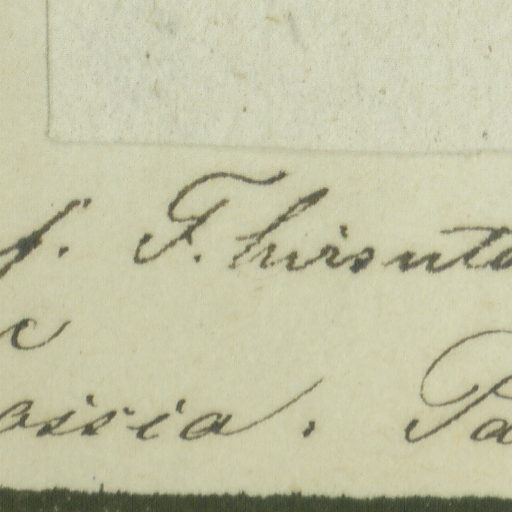 f. F. hirsuta
c
ossia. Pa